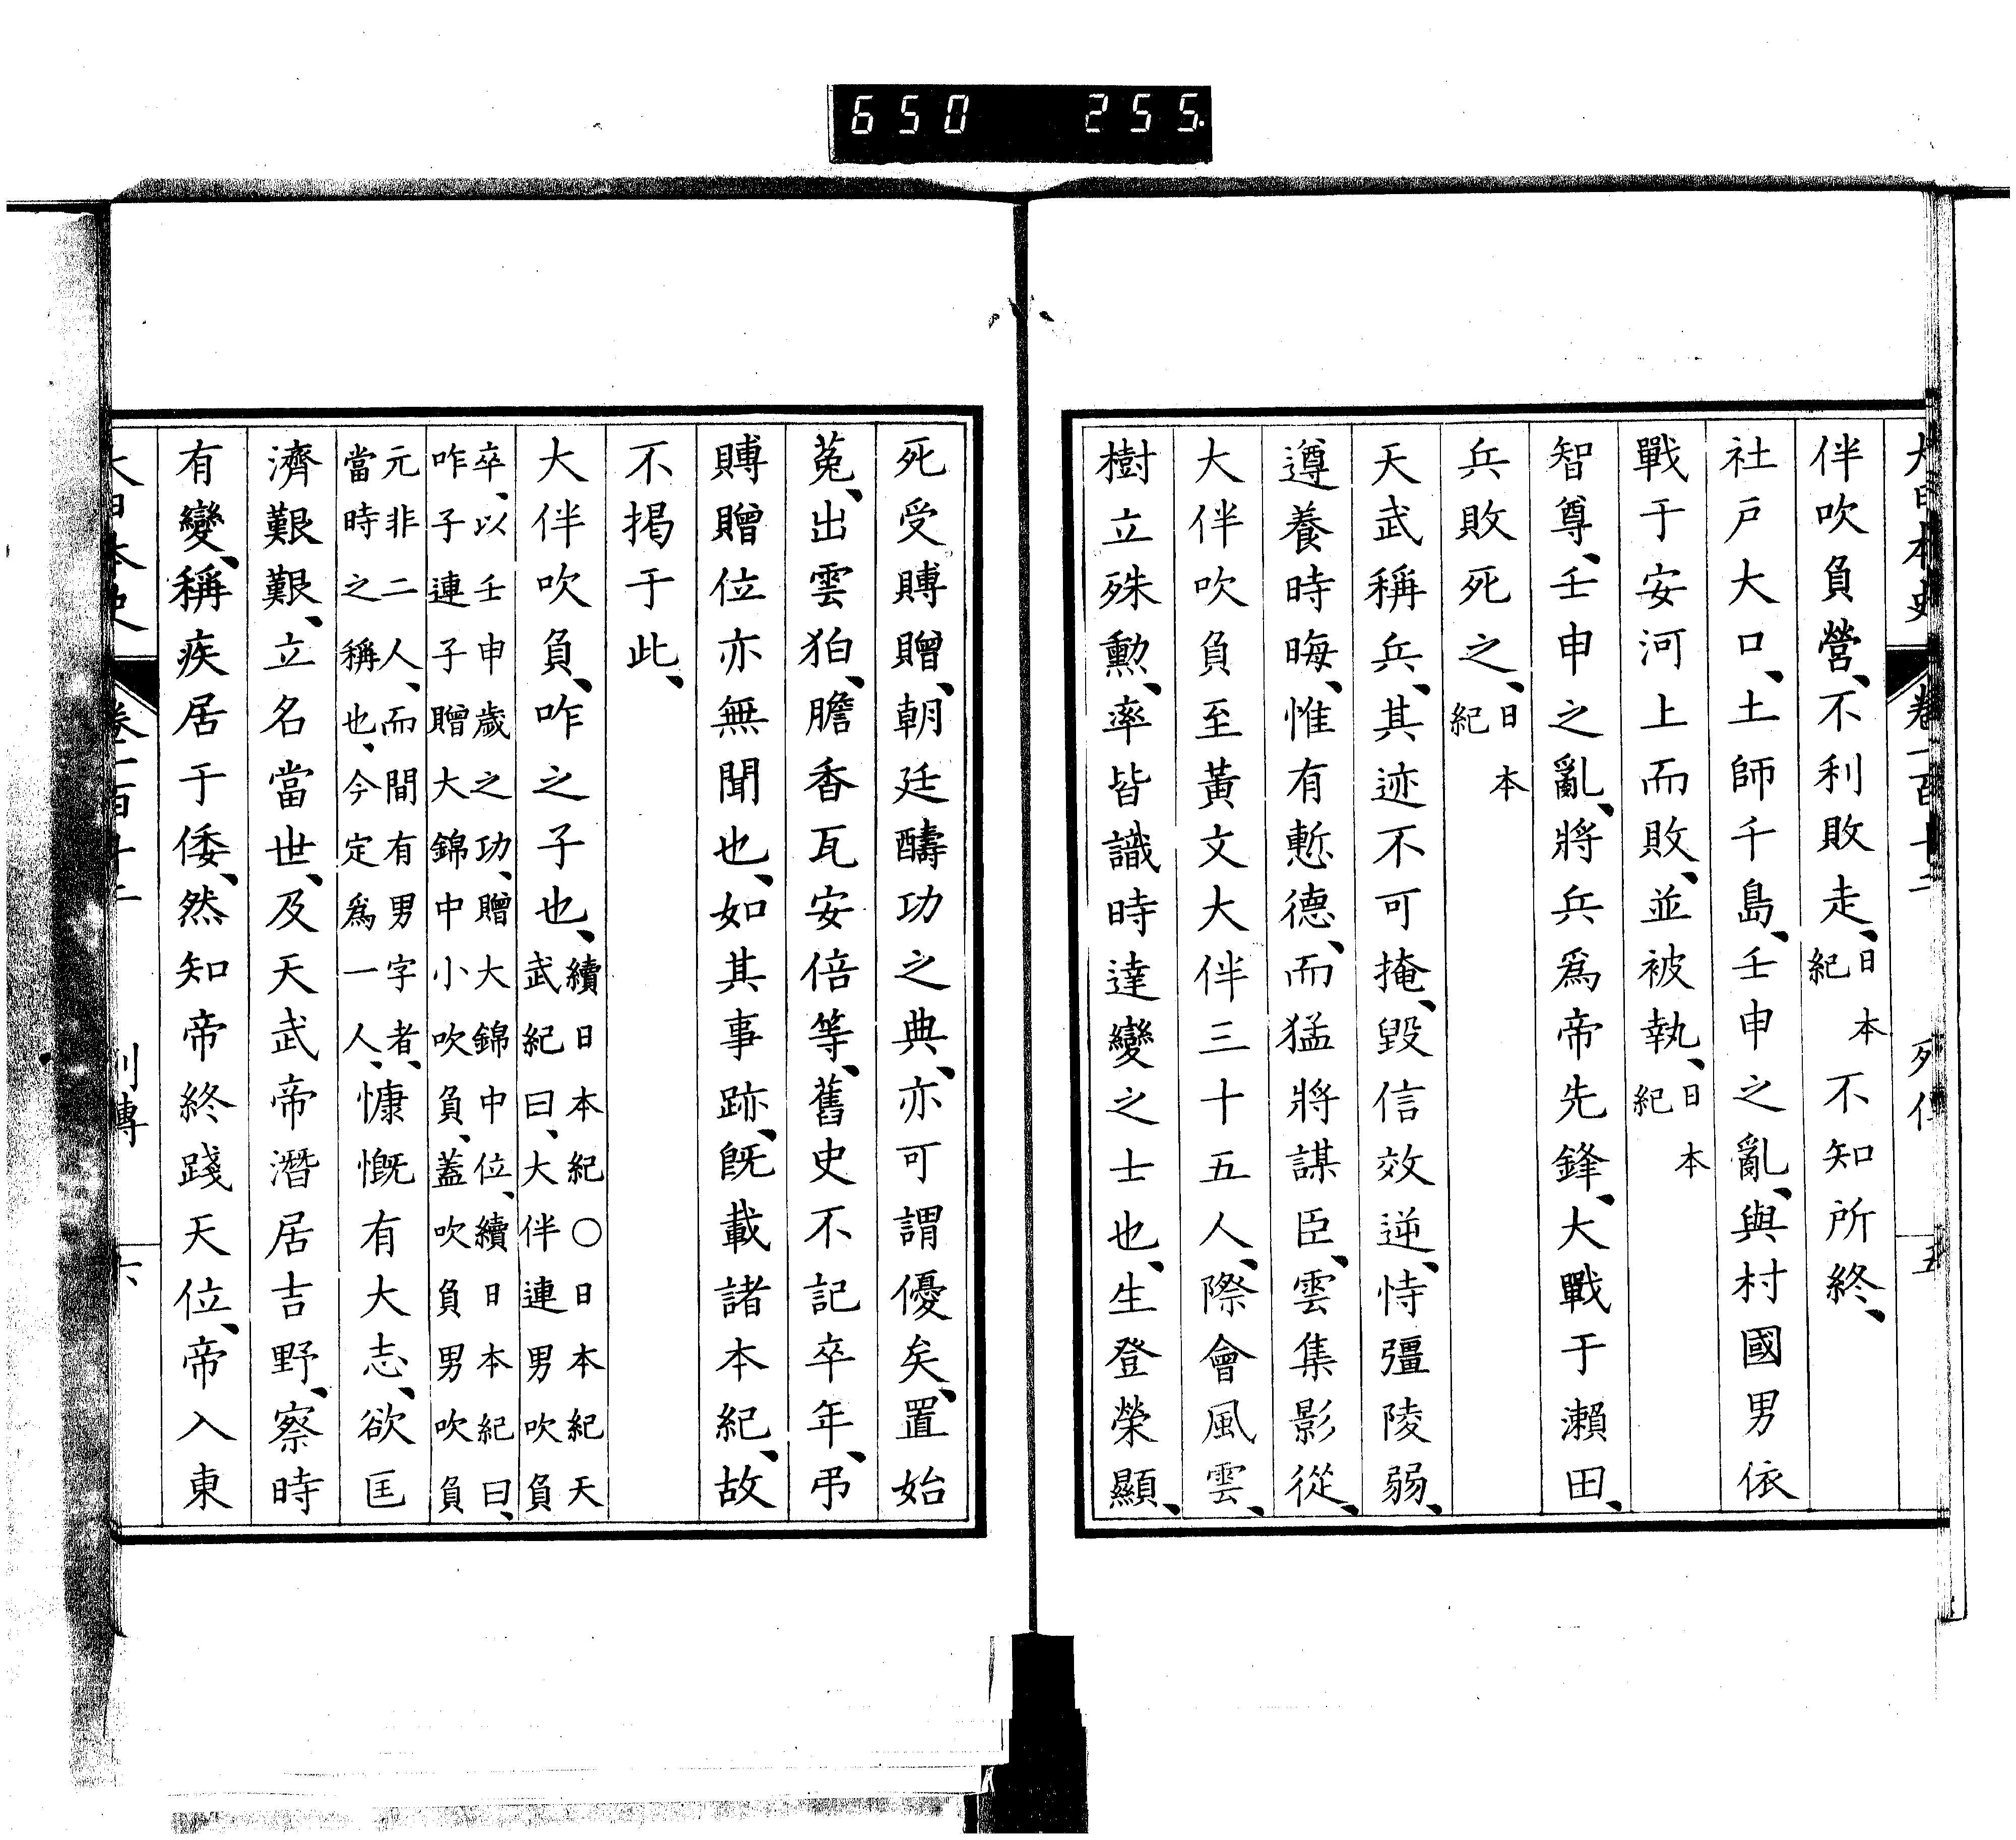 650 255
伴吹負營、不利敗走、日本紀不知所終、
社戶大口、土師千島、壬申之亂、與村國男依
戰于安河上而敗、並被執、日本紀
智尊、壬申之亂、將兵爲帝先鋒、大戰于瀨田、
兵敗死之、日本紀
天武稱兵、其迹不可掩、毀信效逆、恃彊陵弱、
遵養時晦、惟有慙德、而猛將謀臣、雲集影從、
大伴吹負至黃文大伴三十五人、際會風雲、
樹立殊勳、率皆識時達變之士也、生登榮顯、
死受賻贈、朝廷酬功之典、亦可謂優矣、置始
菟、出雲狛、膽香瓦安倍等、舊史不記卒年、弔
賻贈位亦無聞也、如其事跡、旣載諸本紀、故
不掲于此、
大伴吹負、咋之子也、續日本紀〇日本紀天
武紀曰、大伴連男吹負
卒、以壬申歲之功、贈大錦中位、續日本紀曰、
咋子連子贈大錦中小吹負、蓋吹負男吹負
元非二人、而間有男字者、
當時之稱也、今定爲一人、慷慨有大志、欲匡
濟艱艱、立名當世、及天武帝潛居吉野、察時
有變、稱疾居于倭、然知帝終踐天位、帝入東